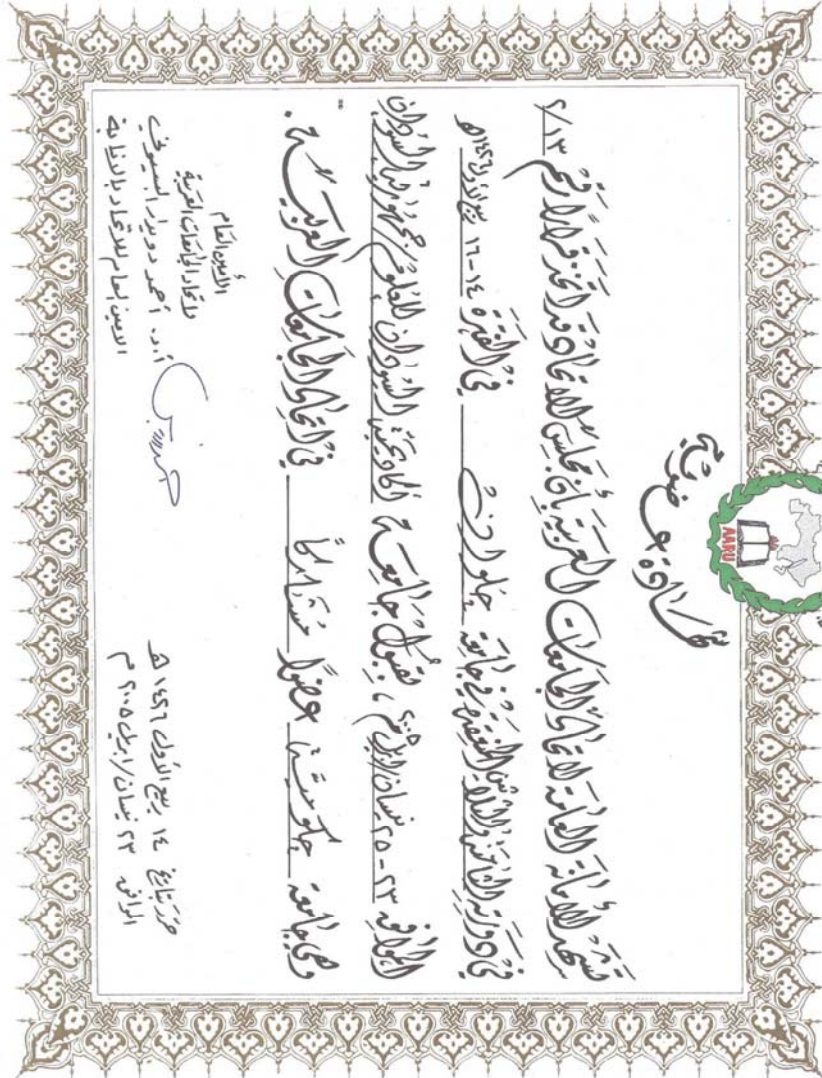 AARU
شهادة عضوية
تشهد الأمانة العامة لاتحاد الجامعات العربية بأن مجلس الاتحاد قد اتخذ قراراً رقم ٢/١٣
في دورته الثامنة والثلاثين المنعقدة في جامعة حلوان في الفترة ١٤-١٦ ربيع الأول ١٤٢٦هـ
الموافق ٢٣-٢٥ نيسان/ابريل ٢٠٠٥م، بقبول جامعة السودان للعلوم/جمهورية السودان
وهي جامعة حكومية عضواً مشاركاً في اتحاد الجامعات العربية.
حرر بتاريخ ١٤ ربيع الأول ١٤٢٦ هـ
الموافق ٢٣ نيسان/ابريل ٢٠٠٥ م
الأمين العام
لاتحاد الجامعات العربية
أ.د. أحمد دويدار البسيوني
الامين العام للاتحاد بالانابة